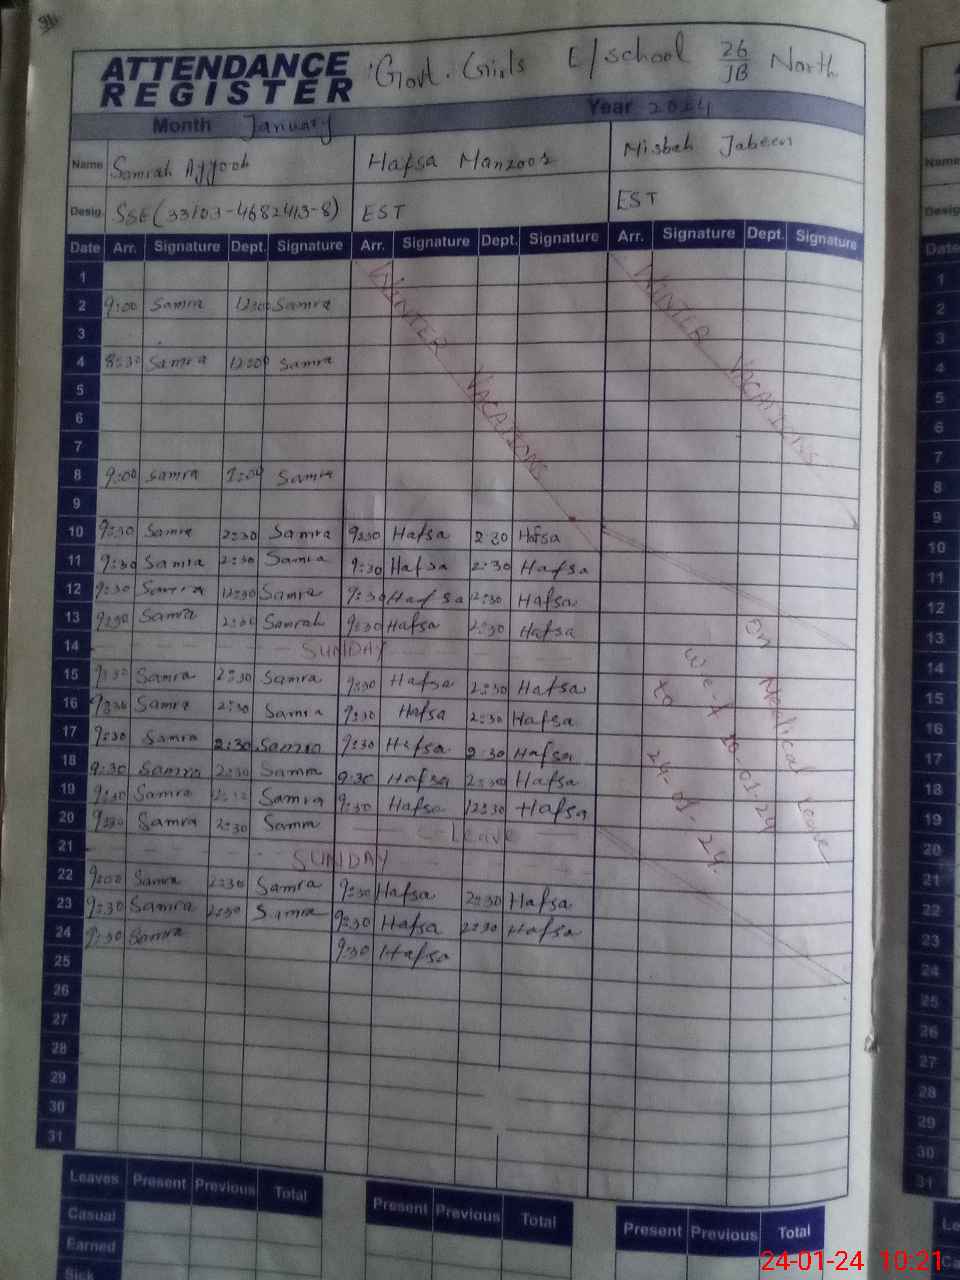 ATTENDANCE REGISTER Govt. Girls E/school 26/JB North
Month January Year 2024
Name Samrah Ayyoob Hafsa Manzoor Misbah Jabeen
Desig. SSE(33103-4682413-8) EST EST
Date Arr. Signature Dept. Signature Arr. Signature Dept. Signature Arr. Signature Dept. Signature
WINTER VACATIONS WINTER VACATIONS
1
2 9:00 Samra 12:00 Samra
3
4 8:30 Samra 12:00 Samra
5
6
7
8 9:00 Samra Samra
9
10 9:30 Samra 2:30 Samra 9:30 Hafsa 2:30 Hafsa
11 9:30 Samra 2:30 Samra 9:30 Hafsa 2:30 Hafsa
12 9:30 Samra 12:30 Samra 9:30 Hafsa 12:30 Hafsa
13 9:30 Samra 2:30 Samrah 9:30 Hafsa 2:30 Hafsa
14 SUNDAY
15 9:30 Samra 2:30 Samra 9:30 Hafsa 2:30 Hafsa
16 9:30 Samra 2:30 Samra 9:30 Hafsa 2:30 Hafsa
17 9:30 Samra 2:30 Samra 9:30 Hafsa 2:30 Hafsa
18 9:30 Samra 2:30 Samra 9:30 Hafsa 2:30 Hafsa
19 9:30 Samra Samra 9:30 Hafsa 12:30 Hafsa
20 9:30 Samra 2:30 Samra Leave
21 SUNDAY
22 9:00 Samra 2:30 Samra 9:30 Hafsa 2:30 Hafsa
23 9:30 Samra 2:30 Samra 9:30 Hafsa 2:30 Hafsa
24 9:30 Samra 9:30 Hafsa
25
26
27
28
29
30
31
On Medical Leave
w-e-f 10-01-24
to 24-01-24.
Leaves Present Previous Total Present Previous Total Present Previous Total
Casual
Earned
Sick
24-01-24 10:21
Name
Desig
Date
1
2
3
4
5
6
7
8
9
10
11
12
13
14
15
16
17
18
19
20
21
22
23
24
25
26
27
28
29
30
31